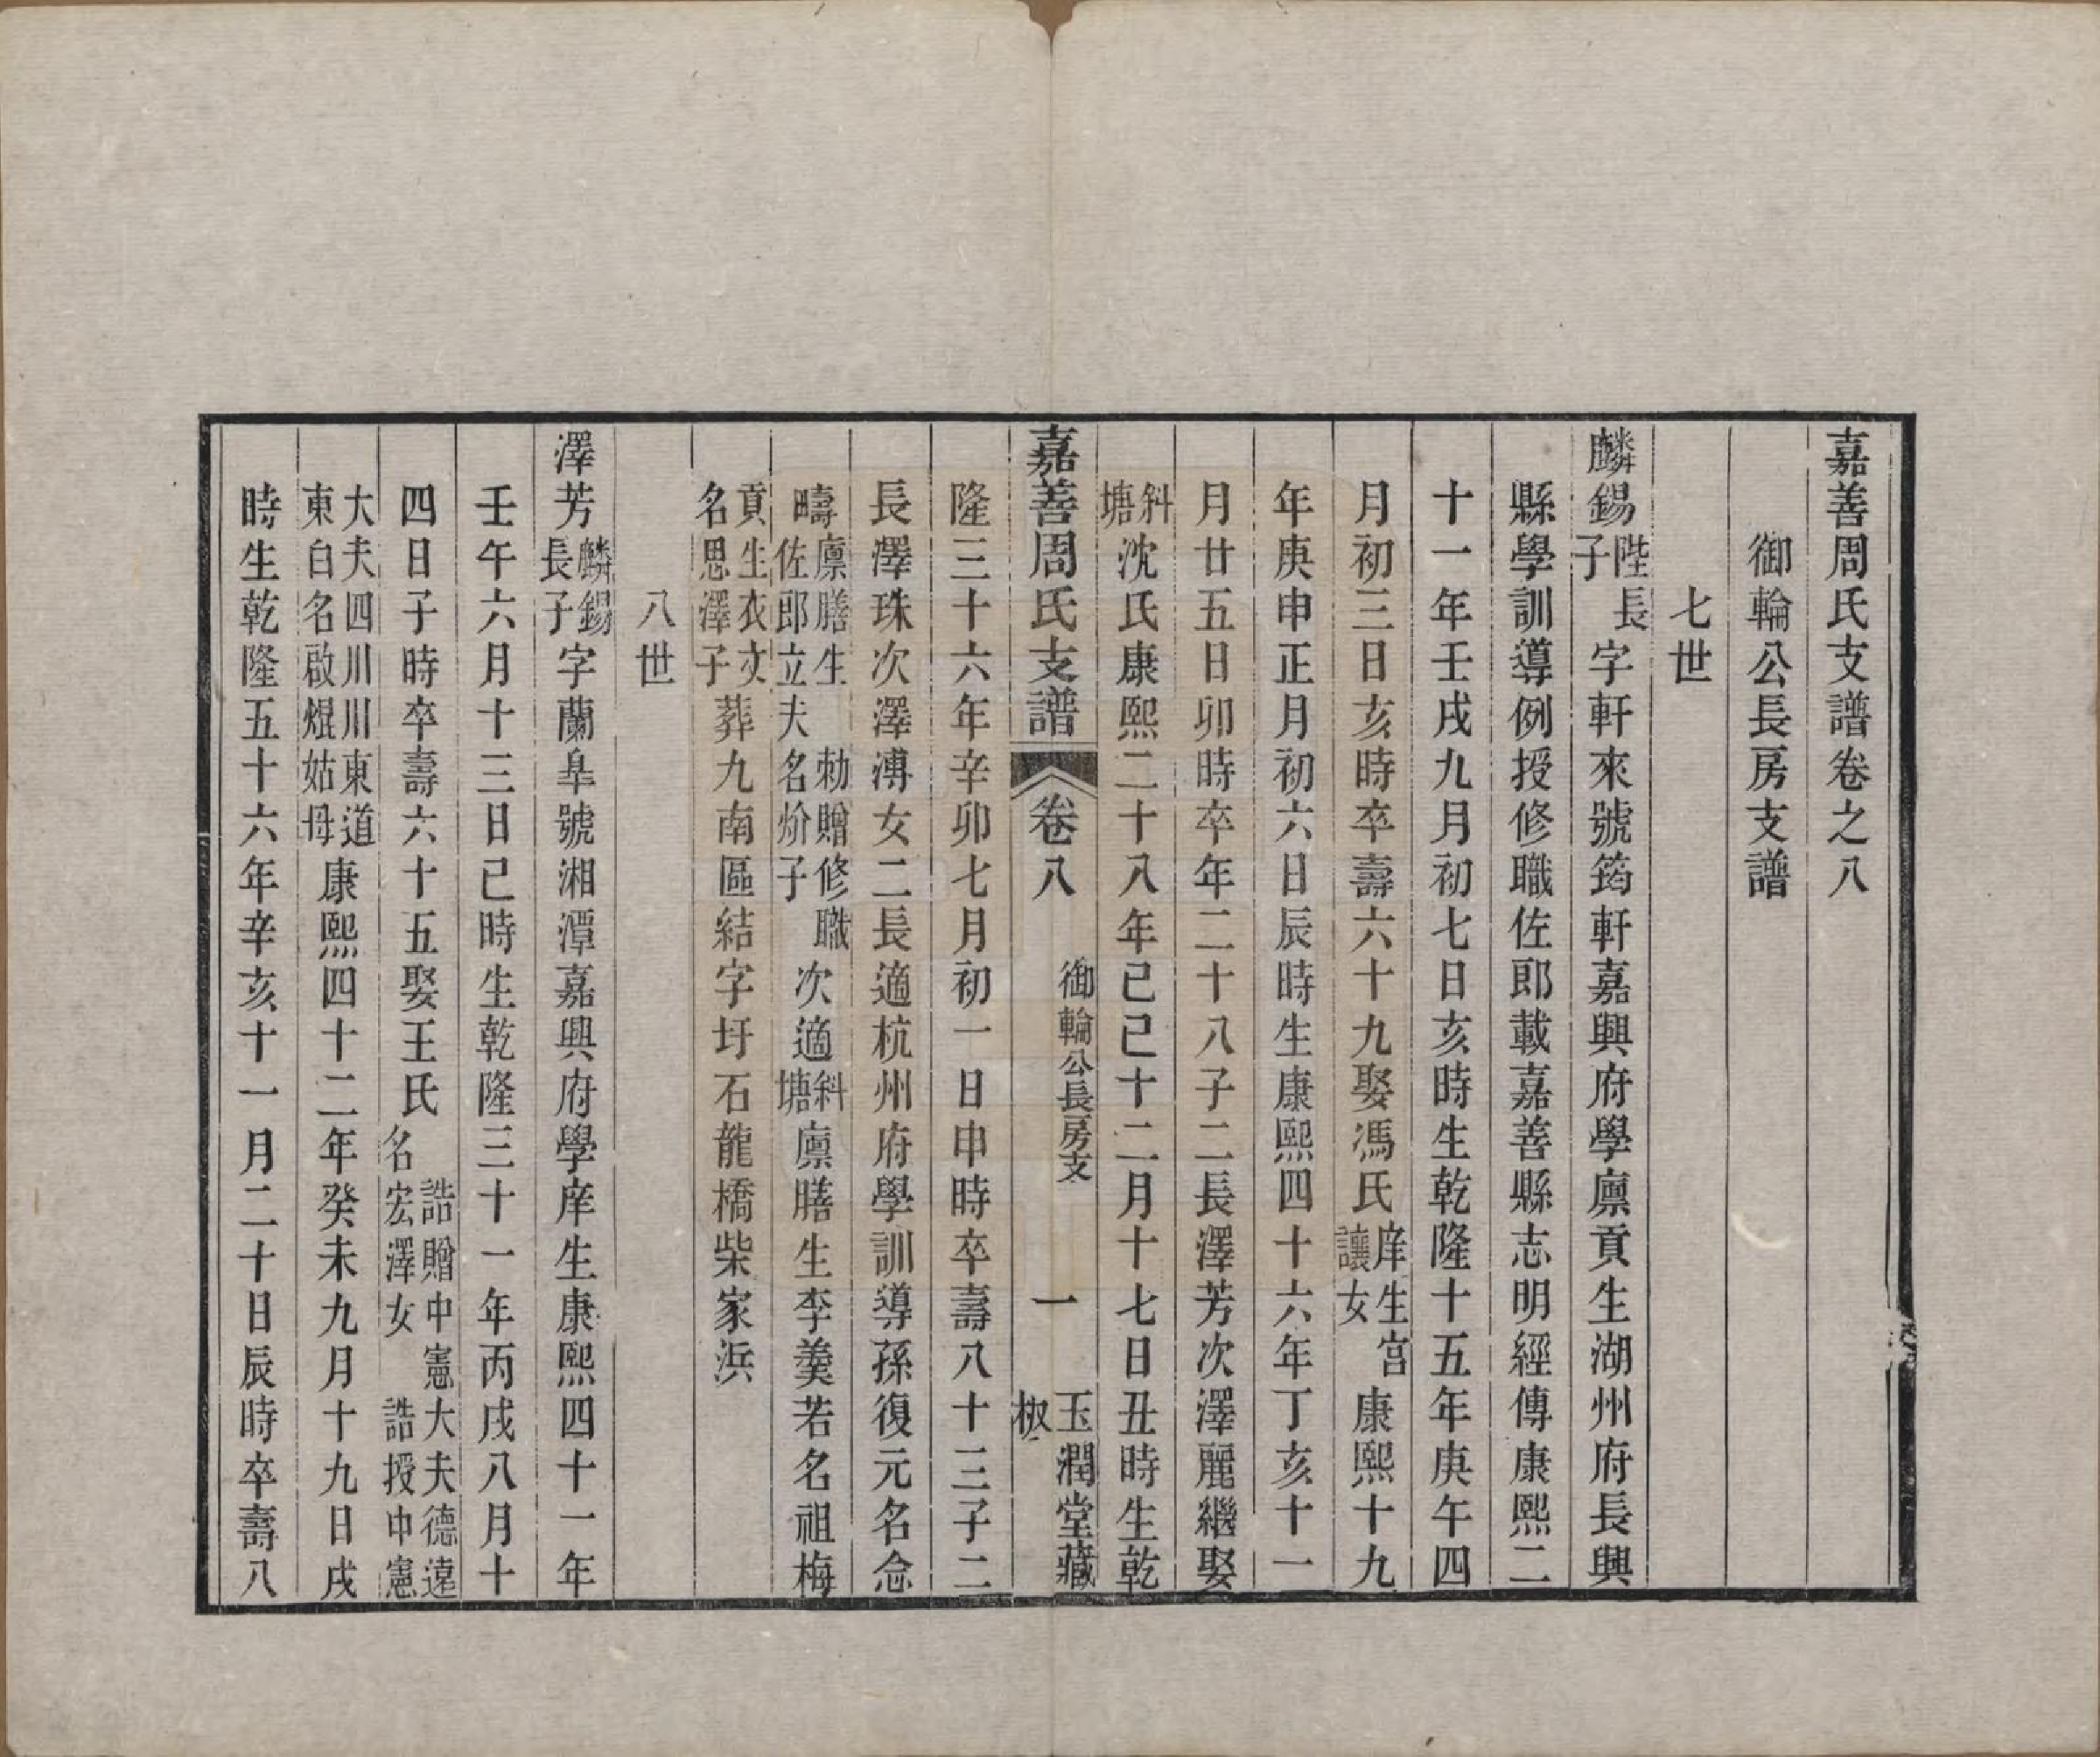 嘉善周氏支譜卷之八
御輪公長房支譜
七世
麟錫陛長子字軒來號筠軒嘉興府學廪貢生湖州府長興
縣學訓導例授修職佐郎載嘉善縣志明經傳康熙二
十一年壬戌九月初七日亥時生乾隆十五年庚午四
月初三日亥時卒壽六十九娶馮氏庠生宮讓女康熙十九
年庚申正月初六日辰時生康熙四十六年丁亥十一
月廿五日卯時卒年二十八子二長澤芳次澤麗繼娶
斜塘沈氏康熙二十八年己巳十二月十七日丑時生乾
嘉善周氏支譜 卷八 御輪公長房支 一 玉潤堂藏板
隆三十六年辛卯七月初一日申時卒壽八十三子二
長澤珠次澤溥女二長適杭州府學訓導孫復元名念
疇廪膳生 勅贈修職佐郎立夫名炌子次適斜塘廪膳生李羹若名祖梅
貢生衣文名思澤子葬九南區結字圩石龍橋柴家浜
八世
澤芳麟錫長子字蘭皐號湘潭嘉興府學庠生康熙四十一年
壬午六月十三日己時生乾隆三十一年丙戌八月十
四日子時卒壽六十五娶王氏 誥贈中憲大夫德遠名宏澤女 誥授中憲
大夫四川川東道東白名啟焜姑母康熙四十二年癸未九月十九日戌
時生乾隆五十六年辛亥十一月二十日辰時卒壽八